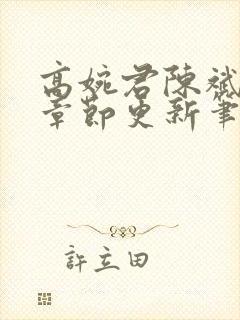 高婉君陳斌
章節更新筆
許立田